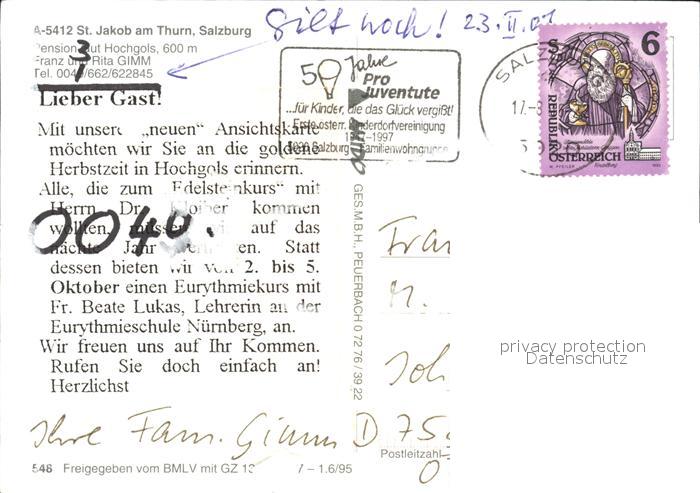 A-5412 St. Jakob am Thurn, Salzburg
Gilt noch! 23.II.01
Pension Gut Hochgols, 600 m
3
1
Franz und Rita GIMM
Tel. 0043/662/622845
Lieber Gast!
Mit unserer „neuen" Ansichtskarte
möchten wir Sie an die goldene
Herbstzeit in Hochgols erinnern.
Alle, die zum „Edelsteinkurs" mit
Herrn Dr. kommen
wollten, müssen auf das
nächste Jahr Statt
dessen bieten wir von 2. bis 5.
Oktober einen Eurythmiekurs mit
Fr. Beate Lukas, Lehrerin an der
Eurythmieschule Nürnberg, an.
Wir freuen uns auf Ihr Kommen.
Rufen Sie doch einfach an!
Herzlichst
004
Ihre Fam. Gimm
548 Freigegeben vom BMLV mit GZ 13 7 – 1.6/95
50 Jahre
Pro
Juventute
...für Kinder, die das Glück vergißt!
Erste österr. Kinderdorfvereinigung
1947-1997
5020 Salzburg Familienwohngruppen
GES.M.B.H., PEUERBACH 0 72 76 / 39 22
SALZ
17.-8
6
S
REPUBLIK
ÖSTERREICH
Frau
M.
D 75
Postleitzahl
privacy protection
Datenschutz